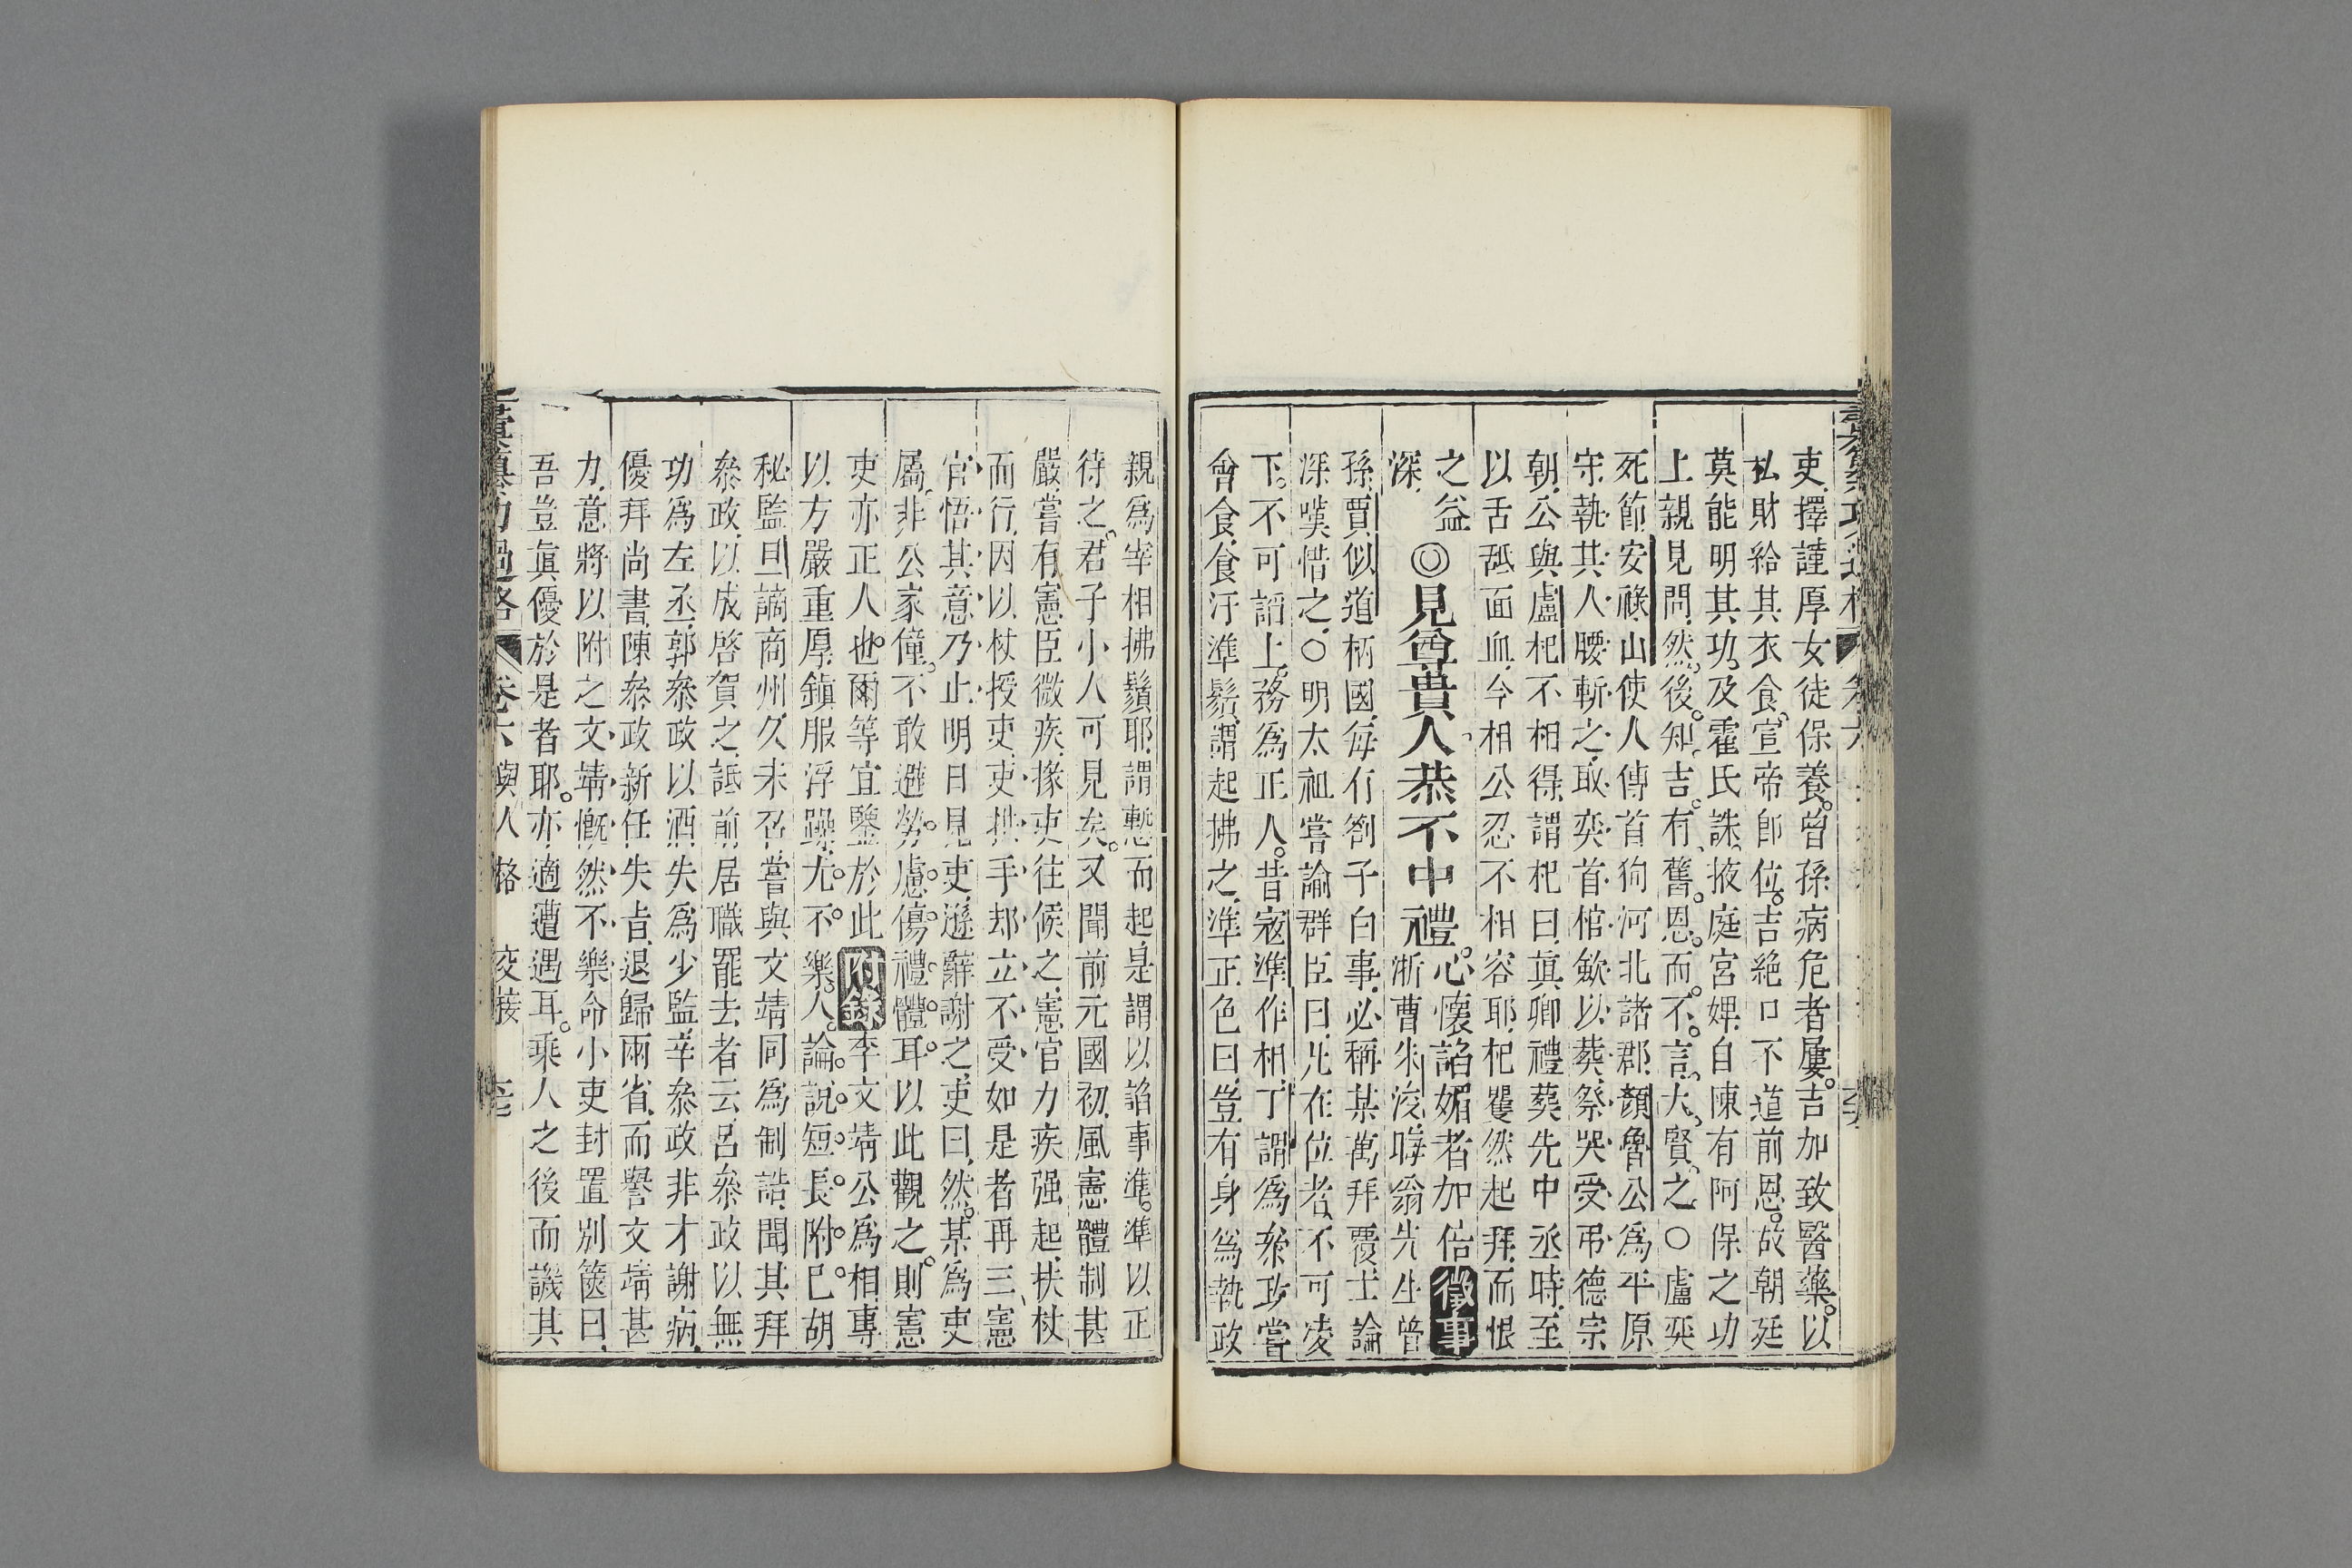 吏擇謹厚女徒保養曾孫病危者屢吉加致醫藥以
私財給其衣食宣帝即位吉絶口不道前恩故朝廷
莫能明其功及霍氏誅掖庭宮婢自陳有阿保之功
上親見問然後知吉有舊恩而不言大賢之○盧奕
死節安祿山使人傳首狥河北諸郡顏魯公爲平原
守執其人腰斬之取奕首棺歛以葬祭哭受弔德宗
朝公與盧杞不相得謂杞曰眞卿禮葬先中丞時至
以舌舐面血今相公忍不相容耶杞矍然起拜而恨
之益
深
◎見尊貴人恭不中禮心懷諂媚者加倍徵事
浙曹朱浚晦翁先生曾
孫賈似道柄國每有劄子白事必稱某萬拜覆士論
深嘆惜之○明太祖嘗論群臣曰凡在位者不可凌
下不可謟上務爲正人昔寇準作相丁謂爲叅政嘗
會食食汙準鬚謂起拂之準正色曰豈有身爲執政
親爲宰相拂鬚耶謂慙而起是謂以諂事準準以正
待之君子小人可見矣又聞前元國初風憲體制甚
嚴嘗有憲臣微疾掾吏往候之憲官力疾强起扶杖
而行因以杖授吏吏拱手却立不受如是者再三憲
官悟其意乃止明日見吏遜辭謝之吏曰然某爲吏
屬非公家僮不敢避勞慮傷禮體耳以此觀之則憲
吏亦正人也爾等宜鑒於此附錄李文靖公爲相專
以方嚴重厚鎭服浮躁尤不樂人論說短長附已胡
秘監旦謫商州久未召嘗與文靖同爲制誥聞其拜
叅政以成啓賀之詆前居職罷去者云呂叅政以無
功爲左丞郭叅政以酒失爲少監辛叅政非才謝病
優拜尚書陳叅政新任失旨退歸兩省而譽文靖甚
力意將以附之文靖慨然不樂命小吏封置別篋曰
吾豈眞優於是者耶亦適遭遇耳乘人之後而譏其
功過格 卷六 與人格 交接